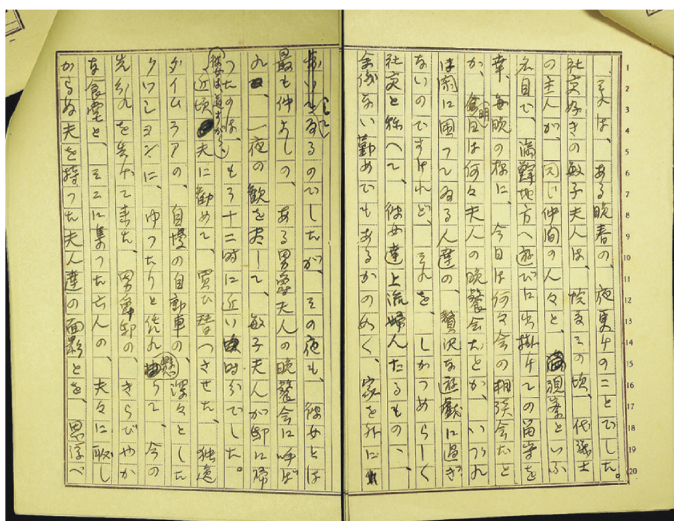 それは、ある晩春の、夜更けのことでした。
社交好きの敏子夫人は、恰度その頃、代議士
の主人が、同じ仲間の人々と、視察といふ
名目で、満鮮地方へ遊びに出掛けての留守を
幸、毎晩の様に、今日は何々会の相談会だと
か、明日は何々夫人の晩餐会だとか、いづれ
は閑に困つてゐる人達の、贅沢な遊戯に過ぎ
ないのですけれど、それを、しかつめらしく
社交と称へて、彼女達上流婦人たるもの、、
余儀ない勤めでもあるかの如く、家を外に
してゐるのでしたが、その夜も、彼女とは
最も仲よしの、ある男爵夫人の晩餐会に呼ば
れ、一夜の歓を尽して、敏子夫人が邸に帰
つたのは、もう十二時に近い時分でした。
彼女は道すがら、
近頃夫に勧めて、買ひ替へさせた、独逸
ダイムラアの、自慢の自動車の、深々とした
クツシヨンに、ゆつたりと凭れ
て、今の
先別れを告げて来た、男爵邸の、きらびやか
な食堂と、そこに集つた
人の、夫々に
かな夫を持つた夫人達の面影とを、思浮べ
1
2
3
4
5
6
7
8
9
10
11
12
13
14
15
16
17
18
19
20